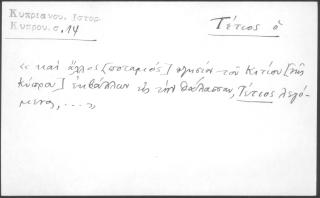 Κυπριανου. Ιστορ.
Κυπρου. σ. 14
Τέτιος ὁ
« καὶ ἄλλος [ποταμὸς] πλησίον τοῦ Κιτίου [τῆς
Κύπρου] ἐκβάλλων εἰς τὴν θάλασσαν, Τέτιος λεγό-
μενος, ... »